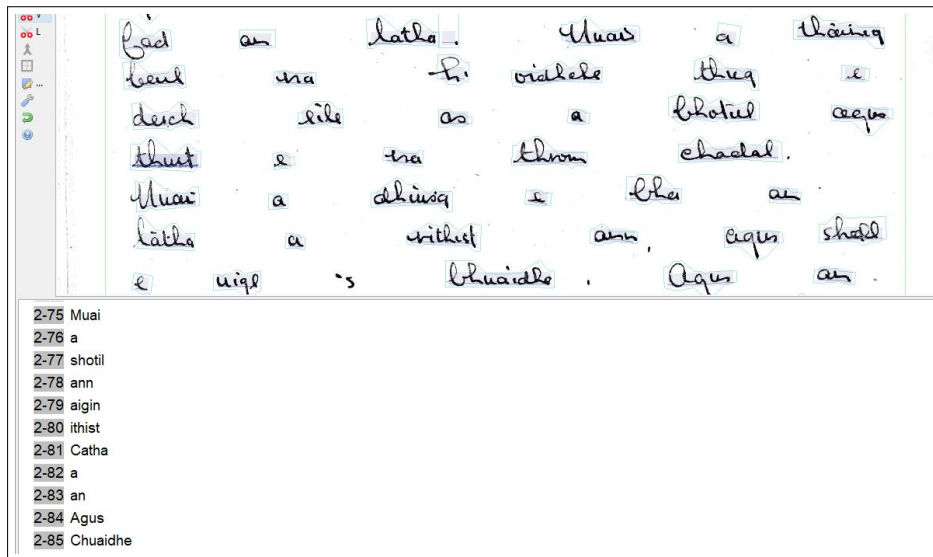 V
L
...
fad an latha. Nuair a thàinig
beul na h- oidhche thug e
deoch eile as a bhotul agus
thuit e na throm chadal.
Nuair a dhùisg e bha an
làtha a rithist ann, agus sheall
e uige 's bhuaidhe. Agus an
2-75 Muai
2-76 a
2-77 shotil
2-78 ann
2-79 aigin
2-80 ithist
2-81 Catha
2-82 a
2-83 an
2-84 Agus
2-85 Chuaidhe